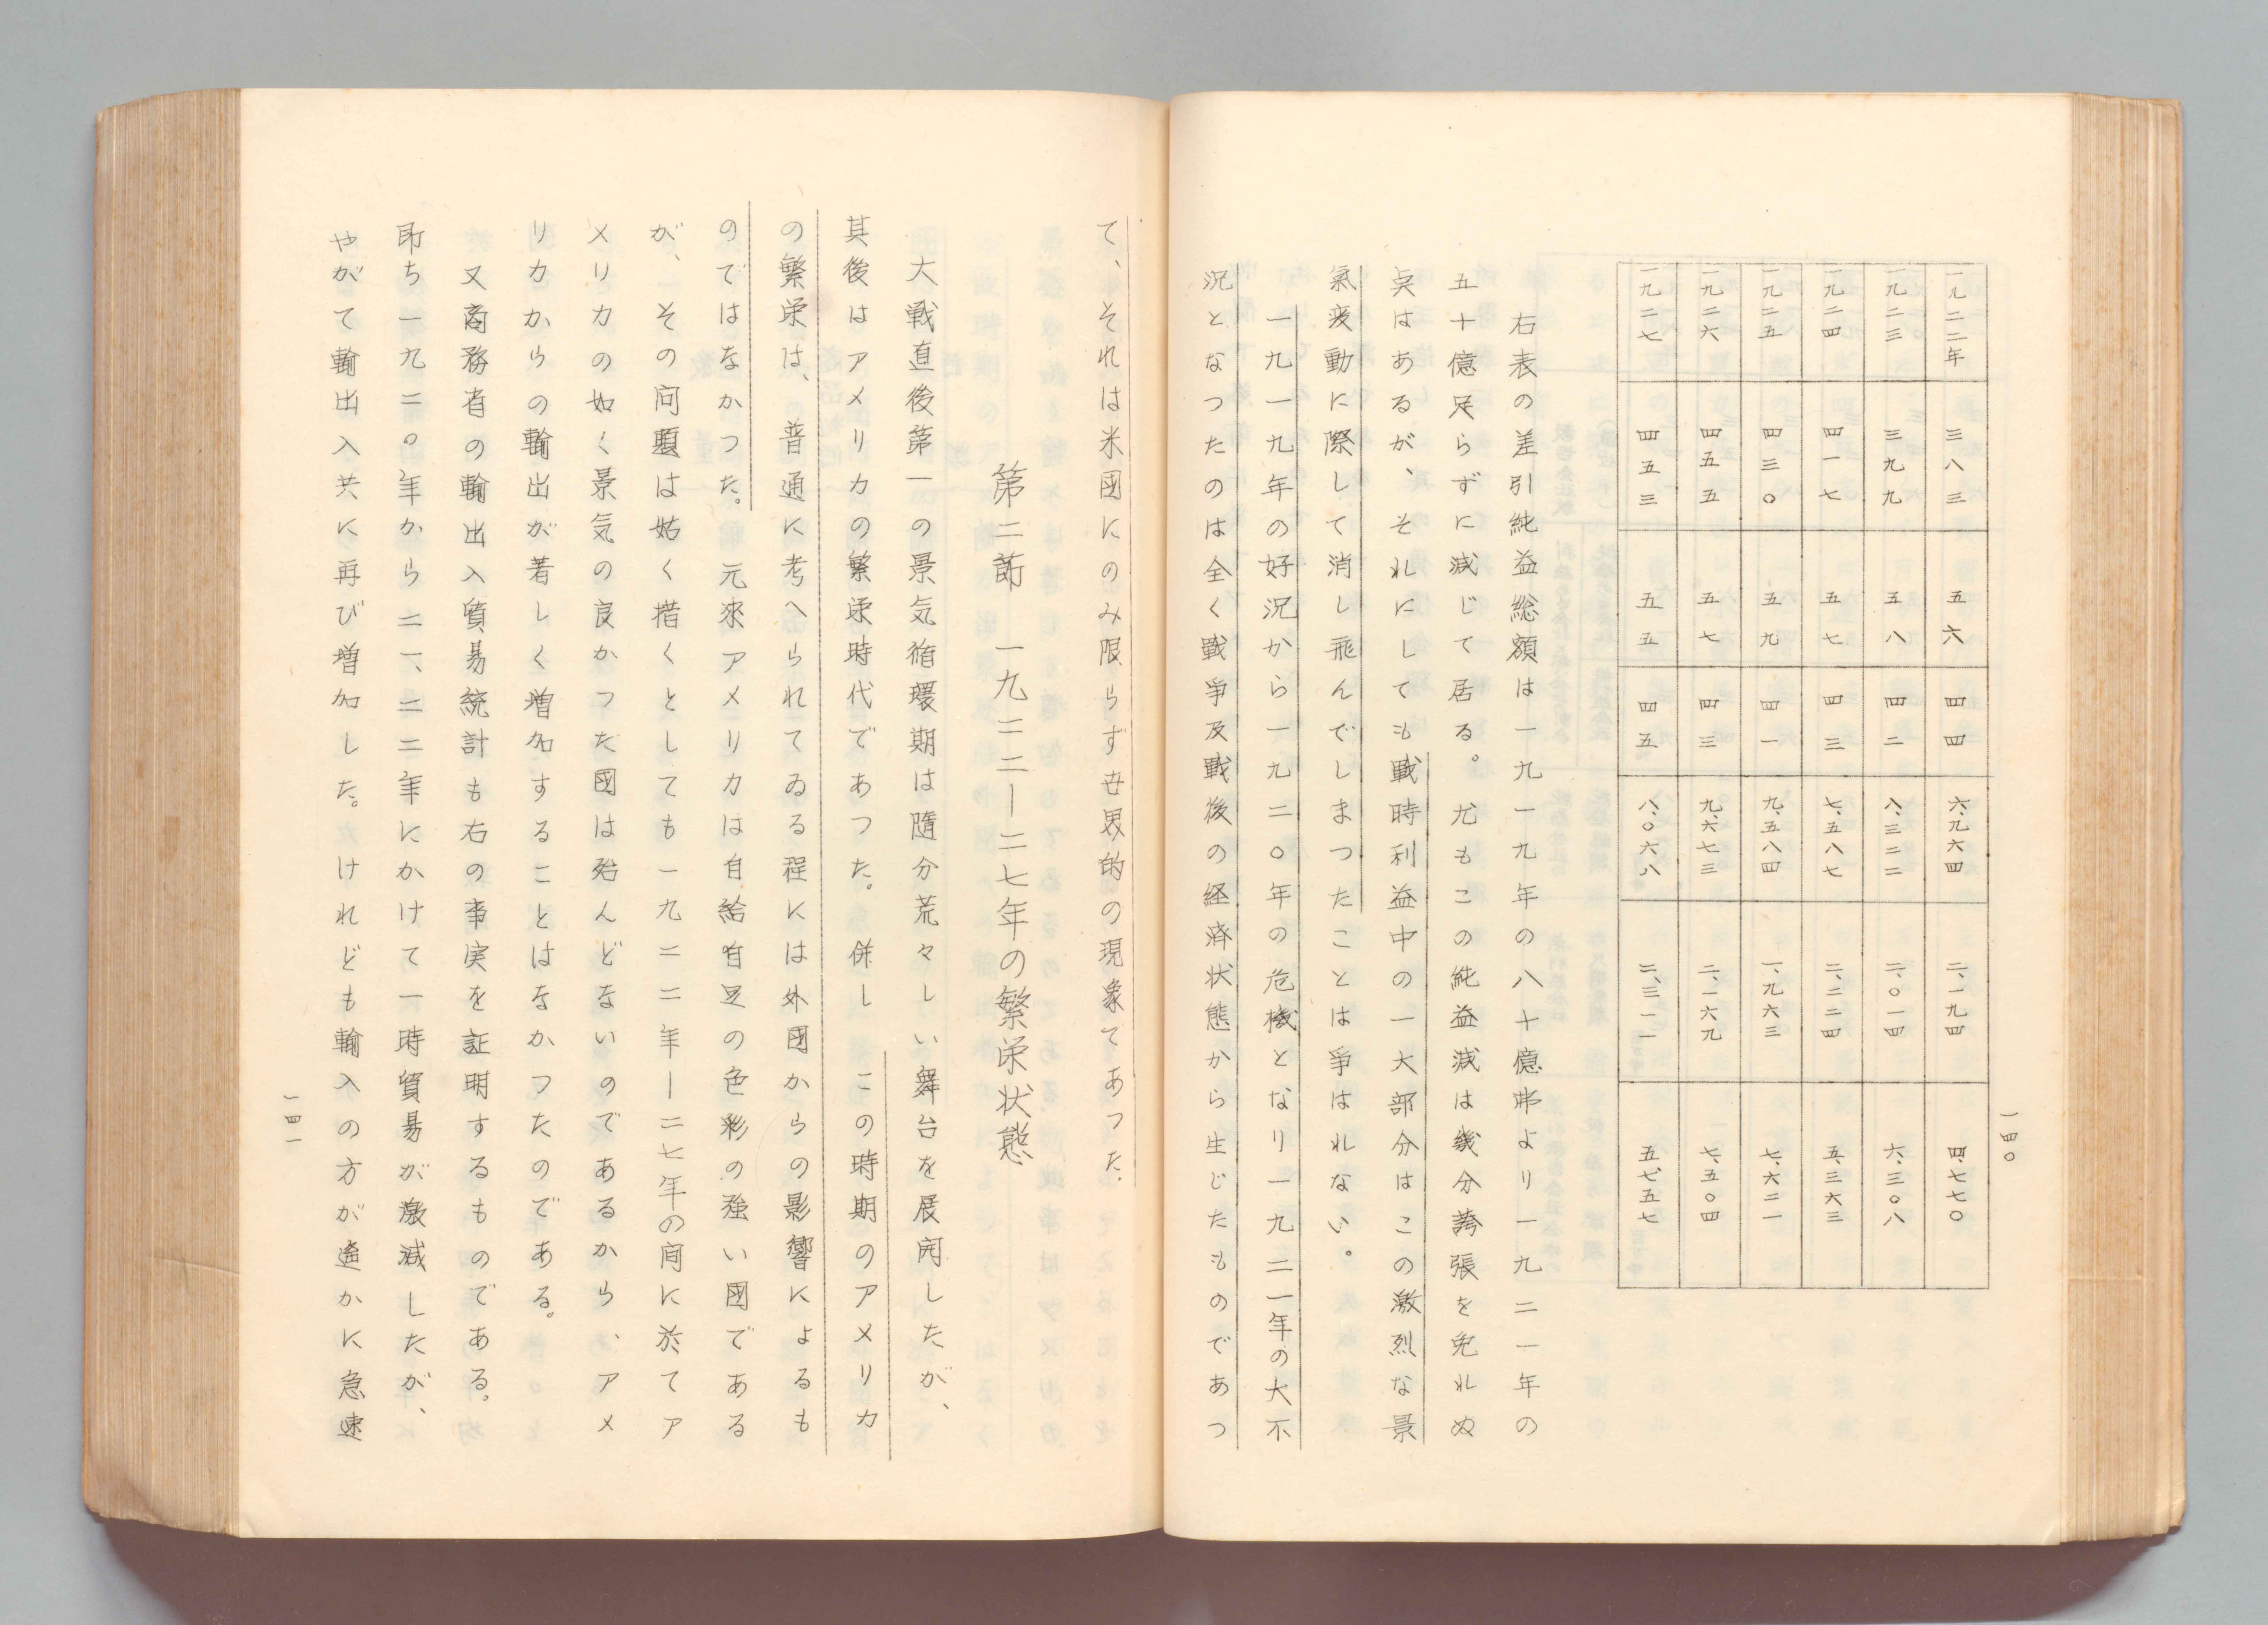 一四〇
一九二二年 三八三 五六 四四 六、九六四 二、一九四 四、七七〇
一九二三 三九九 五八 四二 八、三二二 二、〇一四 六、三〇八
一九二四 四一七 五七 四三 七、五八七 二、二二四 五、三六三
一九二五 四三〇 五九 四一 九、五八四 一、九六三 七、六二一
一九二六 四五五 五七 四三 九、六七三 二、一六九 七、五〇四
一九二七 四五三 五五 四五 八、〇六八 二、三一一 五、七五七
右表の差引純益総額は一九一九年の八十億弗より一九二一年の
五十億足らずに減じて居る。尤もこの純益減は幾分誇張を免れぬ
点はあるが、それにしても戦時利益中の一大部分はこの激烈な景
氣変動に際して消し飛んでしまつたことは爭はれない。
一九一九年の好況から一九二〇年の危機となり一九二一年の大不
況となつたのは全く戦爭及戦後の経済状態から生じたものであつ
て、それは米國にのみ限らず世界的の現象であつた.
第二節 一九二二―二七年の繁栄状態
大戦直後第一の景気循環期は隨分荒々しい舞台を展開したが、
其後はアメリカの繁栄時代であつた。併しこの時期のアメリカ
の繁栄は、普通に考へられてゐる程には外國からの影響によるも
のではなかつた。元來アメリカは自給自足の色彩の強い國である
が、その問題は姑く措くとしても一九二二年―二七年の間に於てア
メリカの如く景気の良かつた國は殆んどないのであるから、アメ
リカからの輸出が著しく増加することはなかつたのである。
又商務省の輸出入貿易統計も右の事実を証明するものである。
即ち一九二〇年から二一、二二年にかけて一時貿易が激減したが、
やがて輸出入共に再び増加した。けれども輸入の方が遙かに急速
一四一